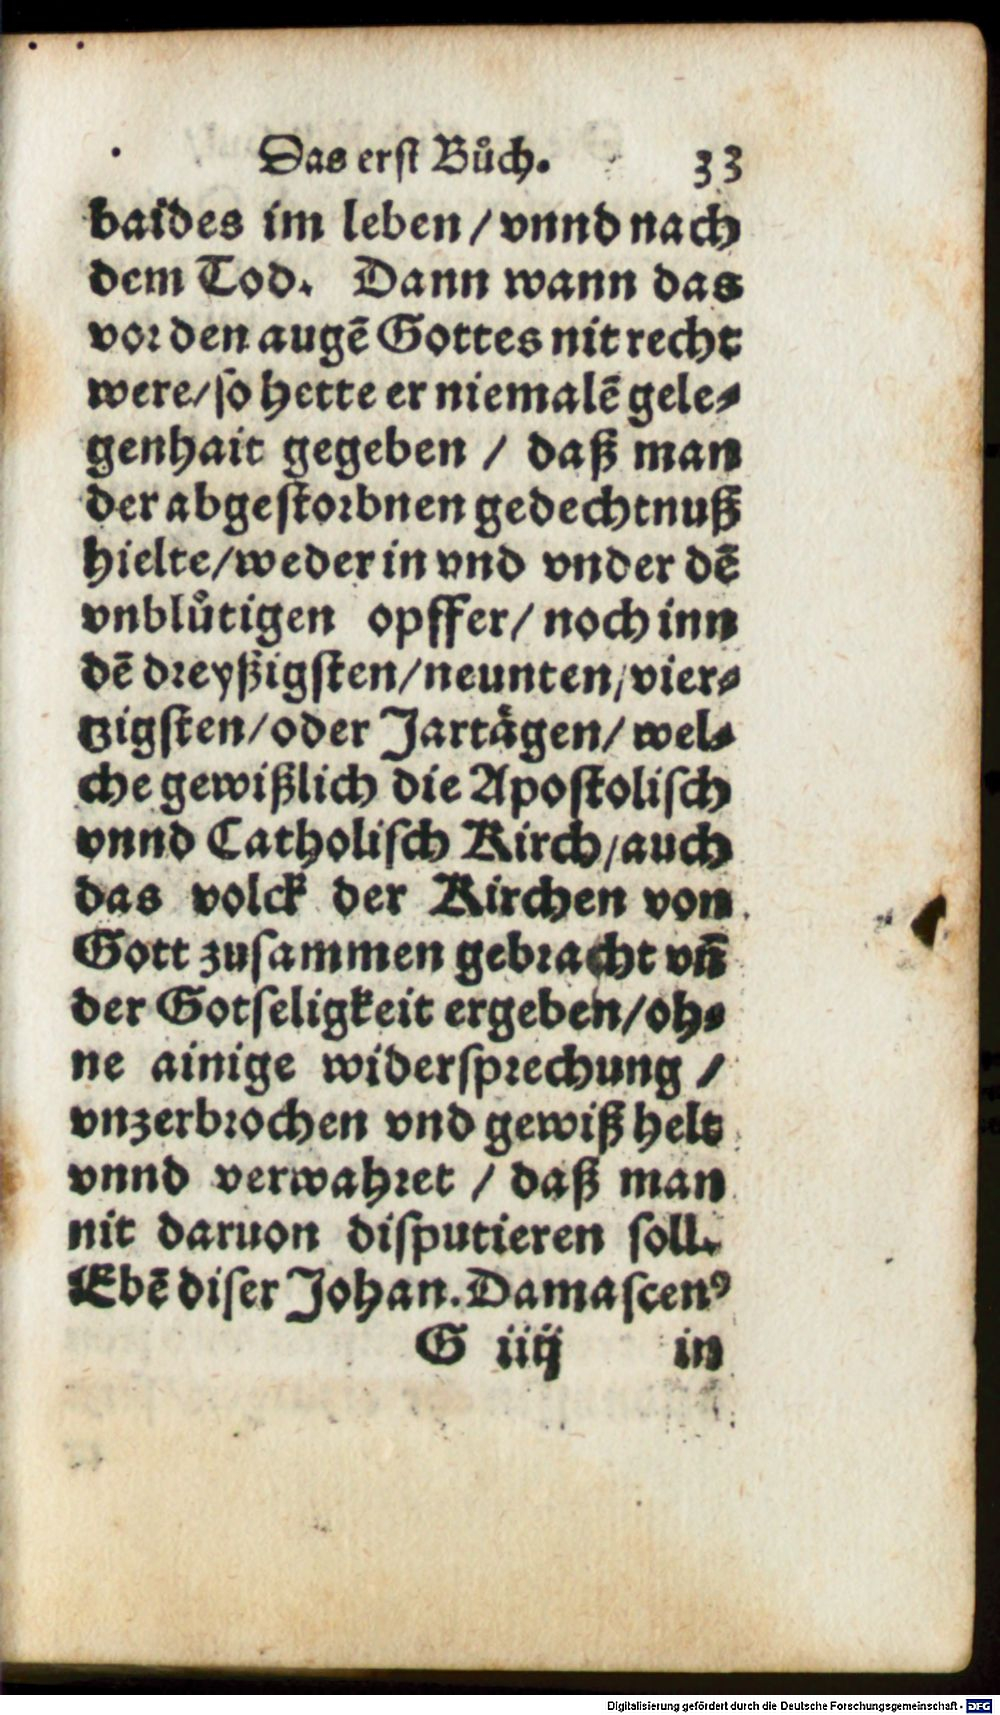 Das erst Bůch. 33
baides im leben / vnnd nach
dem Tod. Dann wann das
vor den augē Gottes nit recht
were / so hette er niemalē gele-
genhait gegeben / daß man
der abgestorbnen gedechtnuß
hielte / weder in vnd vnder dē
vnblůtigen opffer / noch inn
dē dreyßigsten / neunten / vier-
tzigsten / oder Jartägen / wel-
che gewißlich die Apostolisch
vnnd Catholisch Kirch / auch
das volck der Kirchen von
Gott zusammen gebracht vn̄
der Gotseligkeit ergeben / oh-
ne ainige widersprechung /
vnzerbrochen vnd gewiß helt
vnnd verwahret / daß man
nit daruon disputieren soll.
Ebē diser Johan. Damascenꝰ
G iiij in
Digitalisierung gefördert durch die Deutsche Forschungsgemeinschaft - DFG